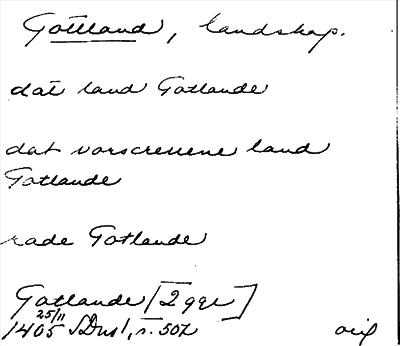 Gottland, landskap.
dat land Gotlande
dat vorscreuene land
Gotlande
rade Gotlande
Gotlande [2 ggr]
25/11
1405 SDns 1, s. 507 orig